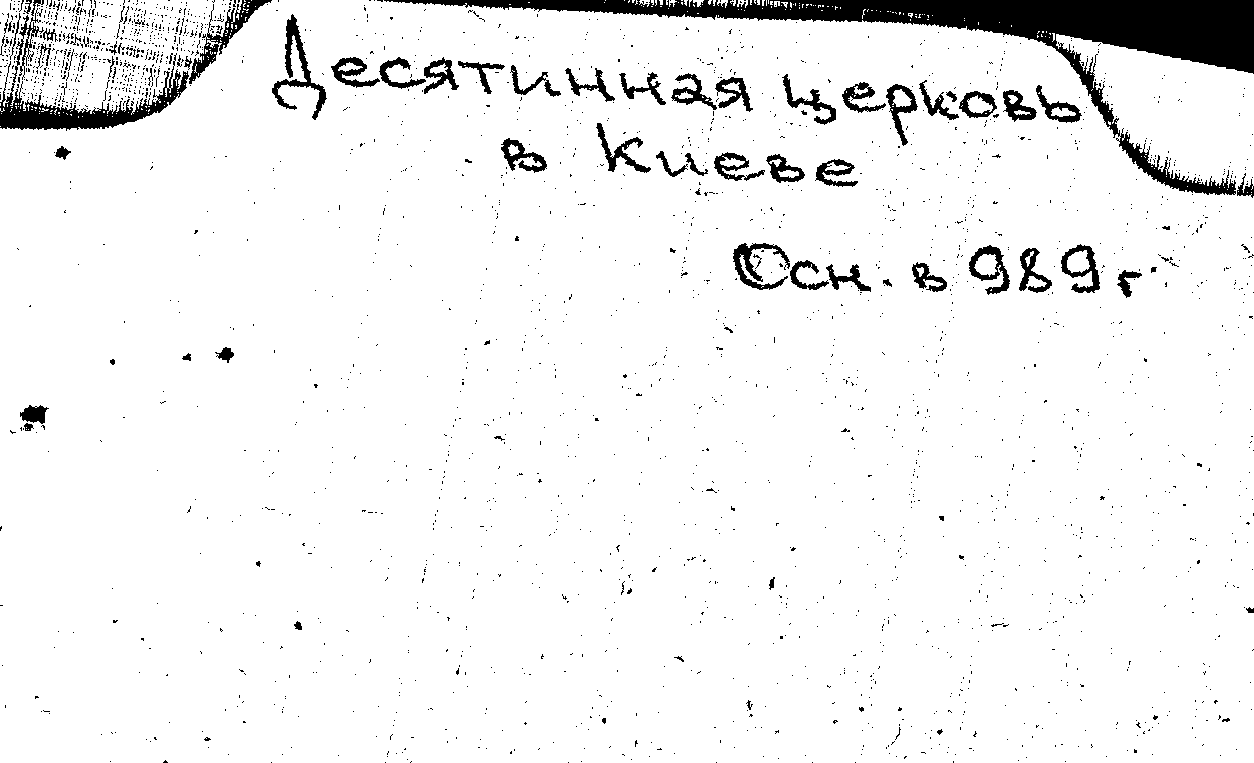 Десятинная церковь
в Киеве
Осн. в 989 г.